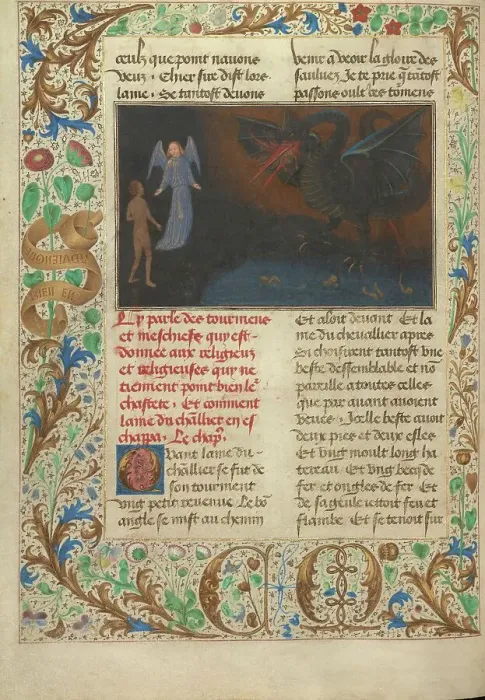 ceulx que point navons
veuz . Chier sire dist lors
lame . Se tantost devons
venir a veoir la gloire des
sauluez Je te prie q̄ tatost
passons oult ces tōmens
Cy parle des tourmens
et meschiefz quy est
donnee aux religieux
et religieuses quy ne
tiennent point bien le~
chastete . Et comment
lame du chãllier en es
chappa . Le chap~.
Quant lame du
chãllier se fut de
son tourment
ung petit revenue Le bõ
angle se mist au chemin
Et aloit devant Et la
me du chevallier apres
Si choisirent tantost une
beste dessemblable et nõ
pareille a toutes celles
que par avant avoient
veues . Icelle beste avoit
deux pies et deux esles
Et ung moult long ha
tereau . Et ung becq de
fer et ongles de fer Et
de sa geule iettoit feu et
flambe . Et se tenoit sur
C M